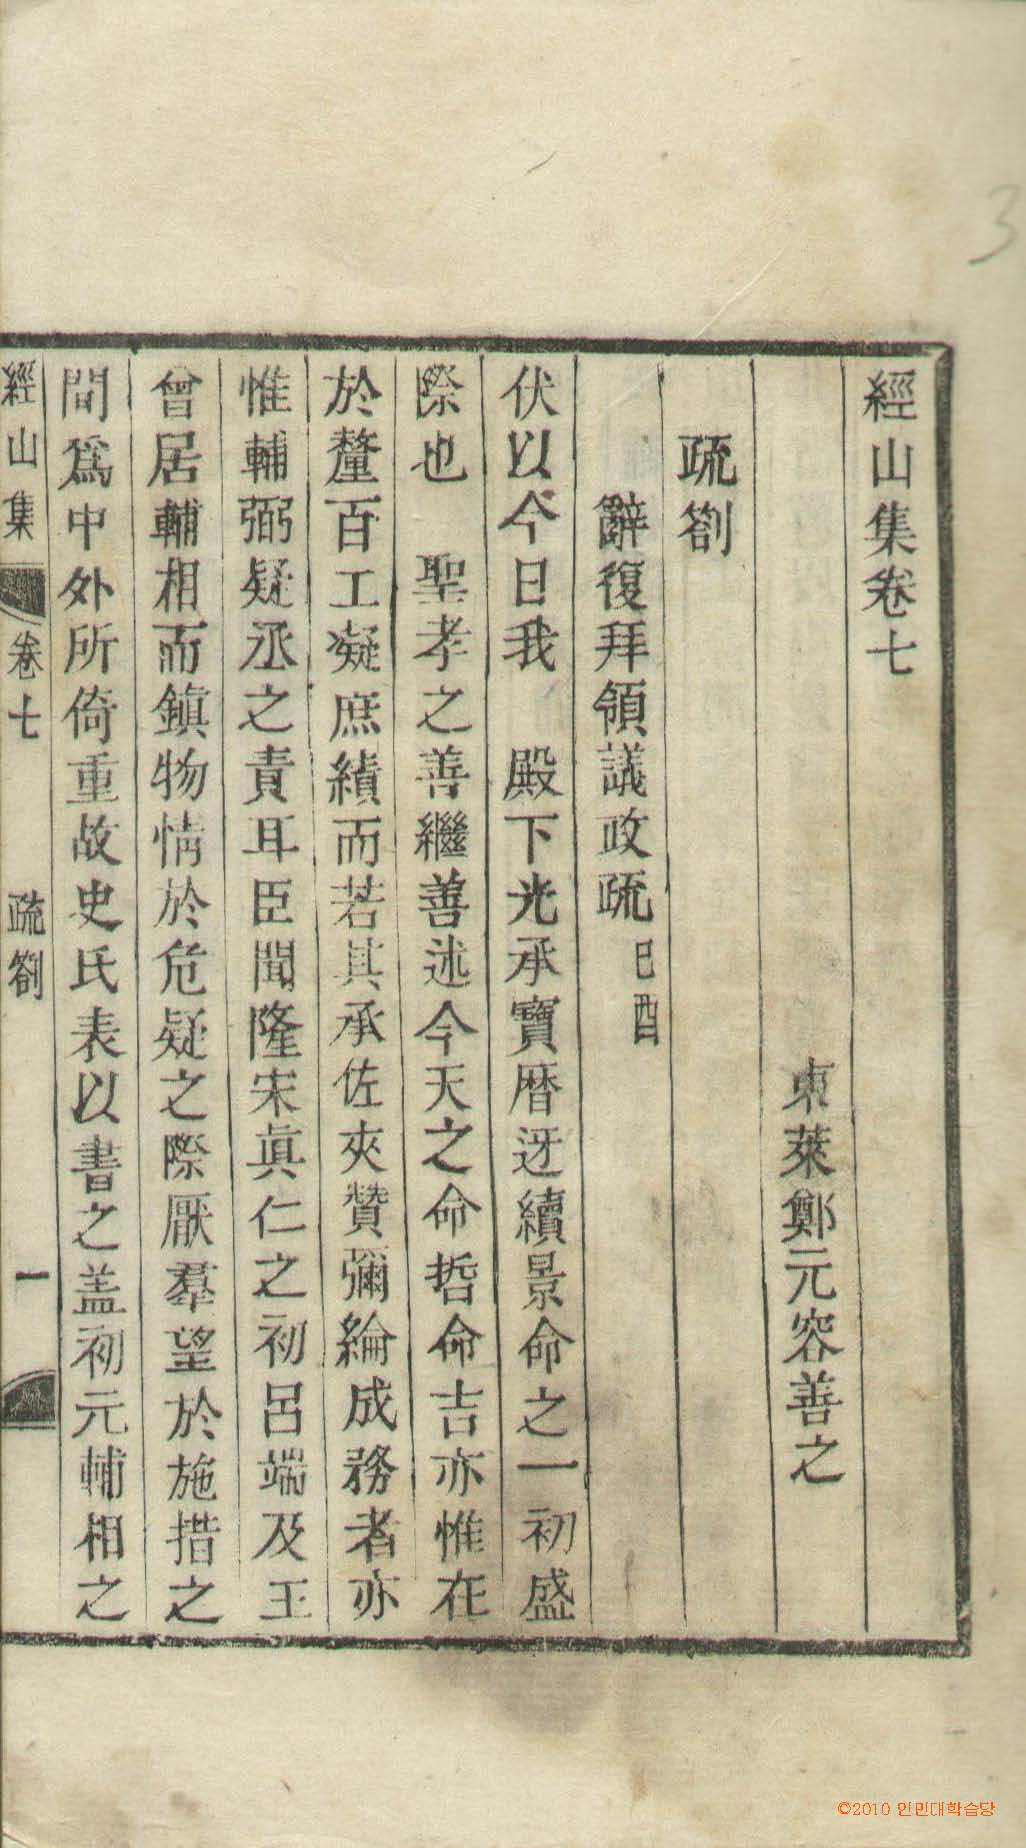 3
經山集卷七
東萊鄭元容善之
疏劄
辭復拜領議政疏 己酉
伏以今日我 殿下光承寶曆迓續景命之一初盛
際也 聖孝之善繼善述今天之命哲命吉亦惟在
於釐百工凝庶績而若其承佐夾贊彌綸成務者亦
惟輔弼疑丞之責耳臣聞隆宋眞仁之初呂端及王
曾居輔相而鎭物情於危疑之際厭羣望於施措之
間爲中外所倚重故史氏表以書之盖初元輔相之
經山集 卷七 疏劄 一
©2010 인민대학습당